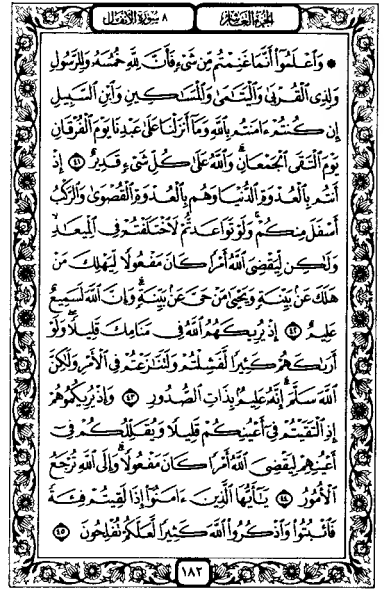 الجزء العاشر
٨ سورة الأنفال
۞ وَٱعْلَمُوٓا۟ أَنَّمَا غَنِمْتُم مِّن شَىْءٍ فَأَنَّ لِلَّهِ خُمُسَهُۥ وَلِلرَّسُولِ
وَلِذِى ٱلْقُرْبَىٰ وَٱلْيَتَٰمَىٰ وَٱلْمَسَٰكِينِ وَٱبْنِ ٱلسَّبِيلِ
إِن كُنتُمْ ءَامَنتُم بِٱللَّهِ وَمَآ أَنزَلْنَا عَلَىٰ عَبْدِنَا يَوْمَ ٱلْفُرْقَانِ
يَوْمَ ٱلْتَقَى ٱلْجَمْعَانِ ۗ وَٱللَّهُ عَلَىٰ كُلِّ شَىْءٍ قَدِيرٌ ﴿٤١﴾ إِذْ
أَنتُم بِٱلْعُدْوَةِ ٱلدُّنْيَا وَهُم بِٱلْعُدْوَةِ ٱلْقُصْوَىٰ وَٱلرَّكْبُ
أَسْفَلَ مِنكُمْ ۚ وَلَوْ تَوَاعَدتُّمْ لَٱخْتَلَفْتُمْ فِى ٱلْمِيعَٰدِ ۙ
وَلَٰكِن لِّيَقْضِىَ ٱللَّهُ أَمْرًا كَانَ مَفْعُولًا لِّيَهْلِكَ مَنْ
هَلَكَ عَنۢ بَيِّنَةٍ وَيَحْيَىٰ مَنْ حَىَّ عَنۢ بَيِّنَةٍ ۗ وَإِنَّ ٱللَّهَ لَسَمِيعٌ
عَلِيمٌ ﴿٤٢﴾ إِذْ يُرِيكَهُمُ ٱللَّهُ فِى مَنَامِكَ قَلِيلًا ۖ وَلَوْ
أَرَىٰكَهُمْ كَثِيرًا لَّفَشِلْتُمْ وَلَتَنَٰزَعْتُمْ فِى ٱلْأَمْرِ وَلَٰكِنَّ
ٱللَّهَ سَلَّمَ ۗ إِنَّهُۥ عَلِيمٌۢ بِذَاتِ ٱلصُّدُورِ ﴿٤٣﴾ وَإِذْ يُرِيكُمُوهُمْ
إِذِ ٱلْتَقَيْتُمْ فِىٓ أَعْيُنِكُمْ قَلِيلًا وَيُقَلِّلُكُمْ فِىٓ
أَعْيُنِهِمْ لِيَقْضِىَ ٱللَّهُ أَمْرًا كَانَ مَفْعُولًا ۗ وَإِلَى ٱللَّهِ تُرْجَعُ
ٱلْأُمُورُ ﴿٤٤﴾ يَٰٓأَيُّهَا ٱلَّذِينَ ءَامَنُوٓا۟ إِذَا لَقِيتُمْ فِئَةً
فَٱثْبُتُوا۟ وَٱذْكُرُوا۟ ٱللَّهَ كَثِيرًا لَّعَلَّكُمْ تُفْلِحُونَ ﴿٤٥﴾
١٨٢